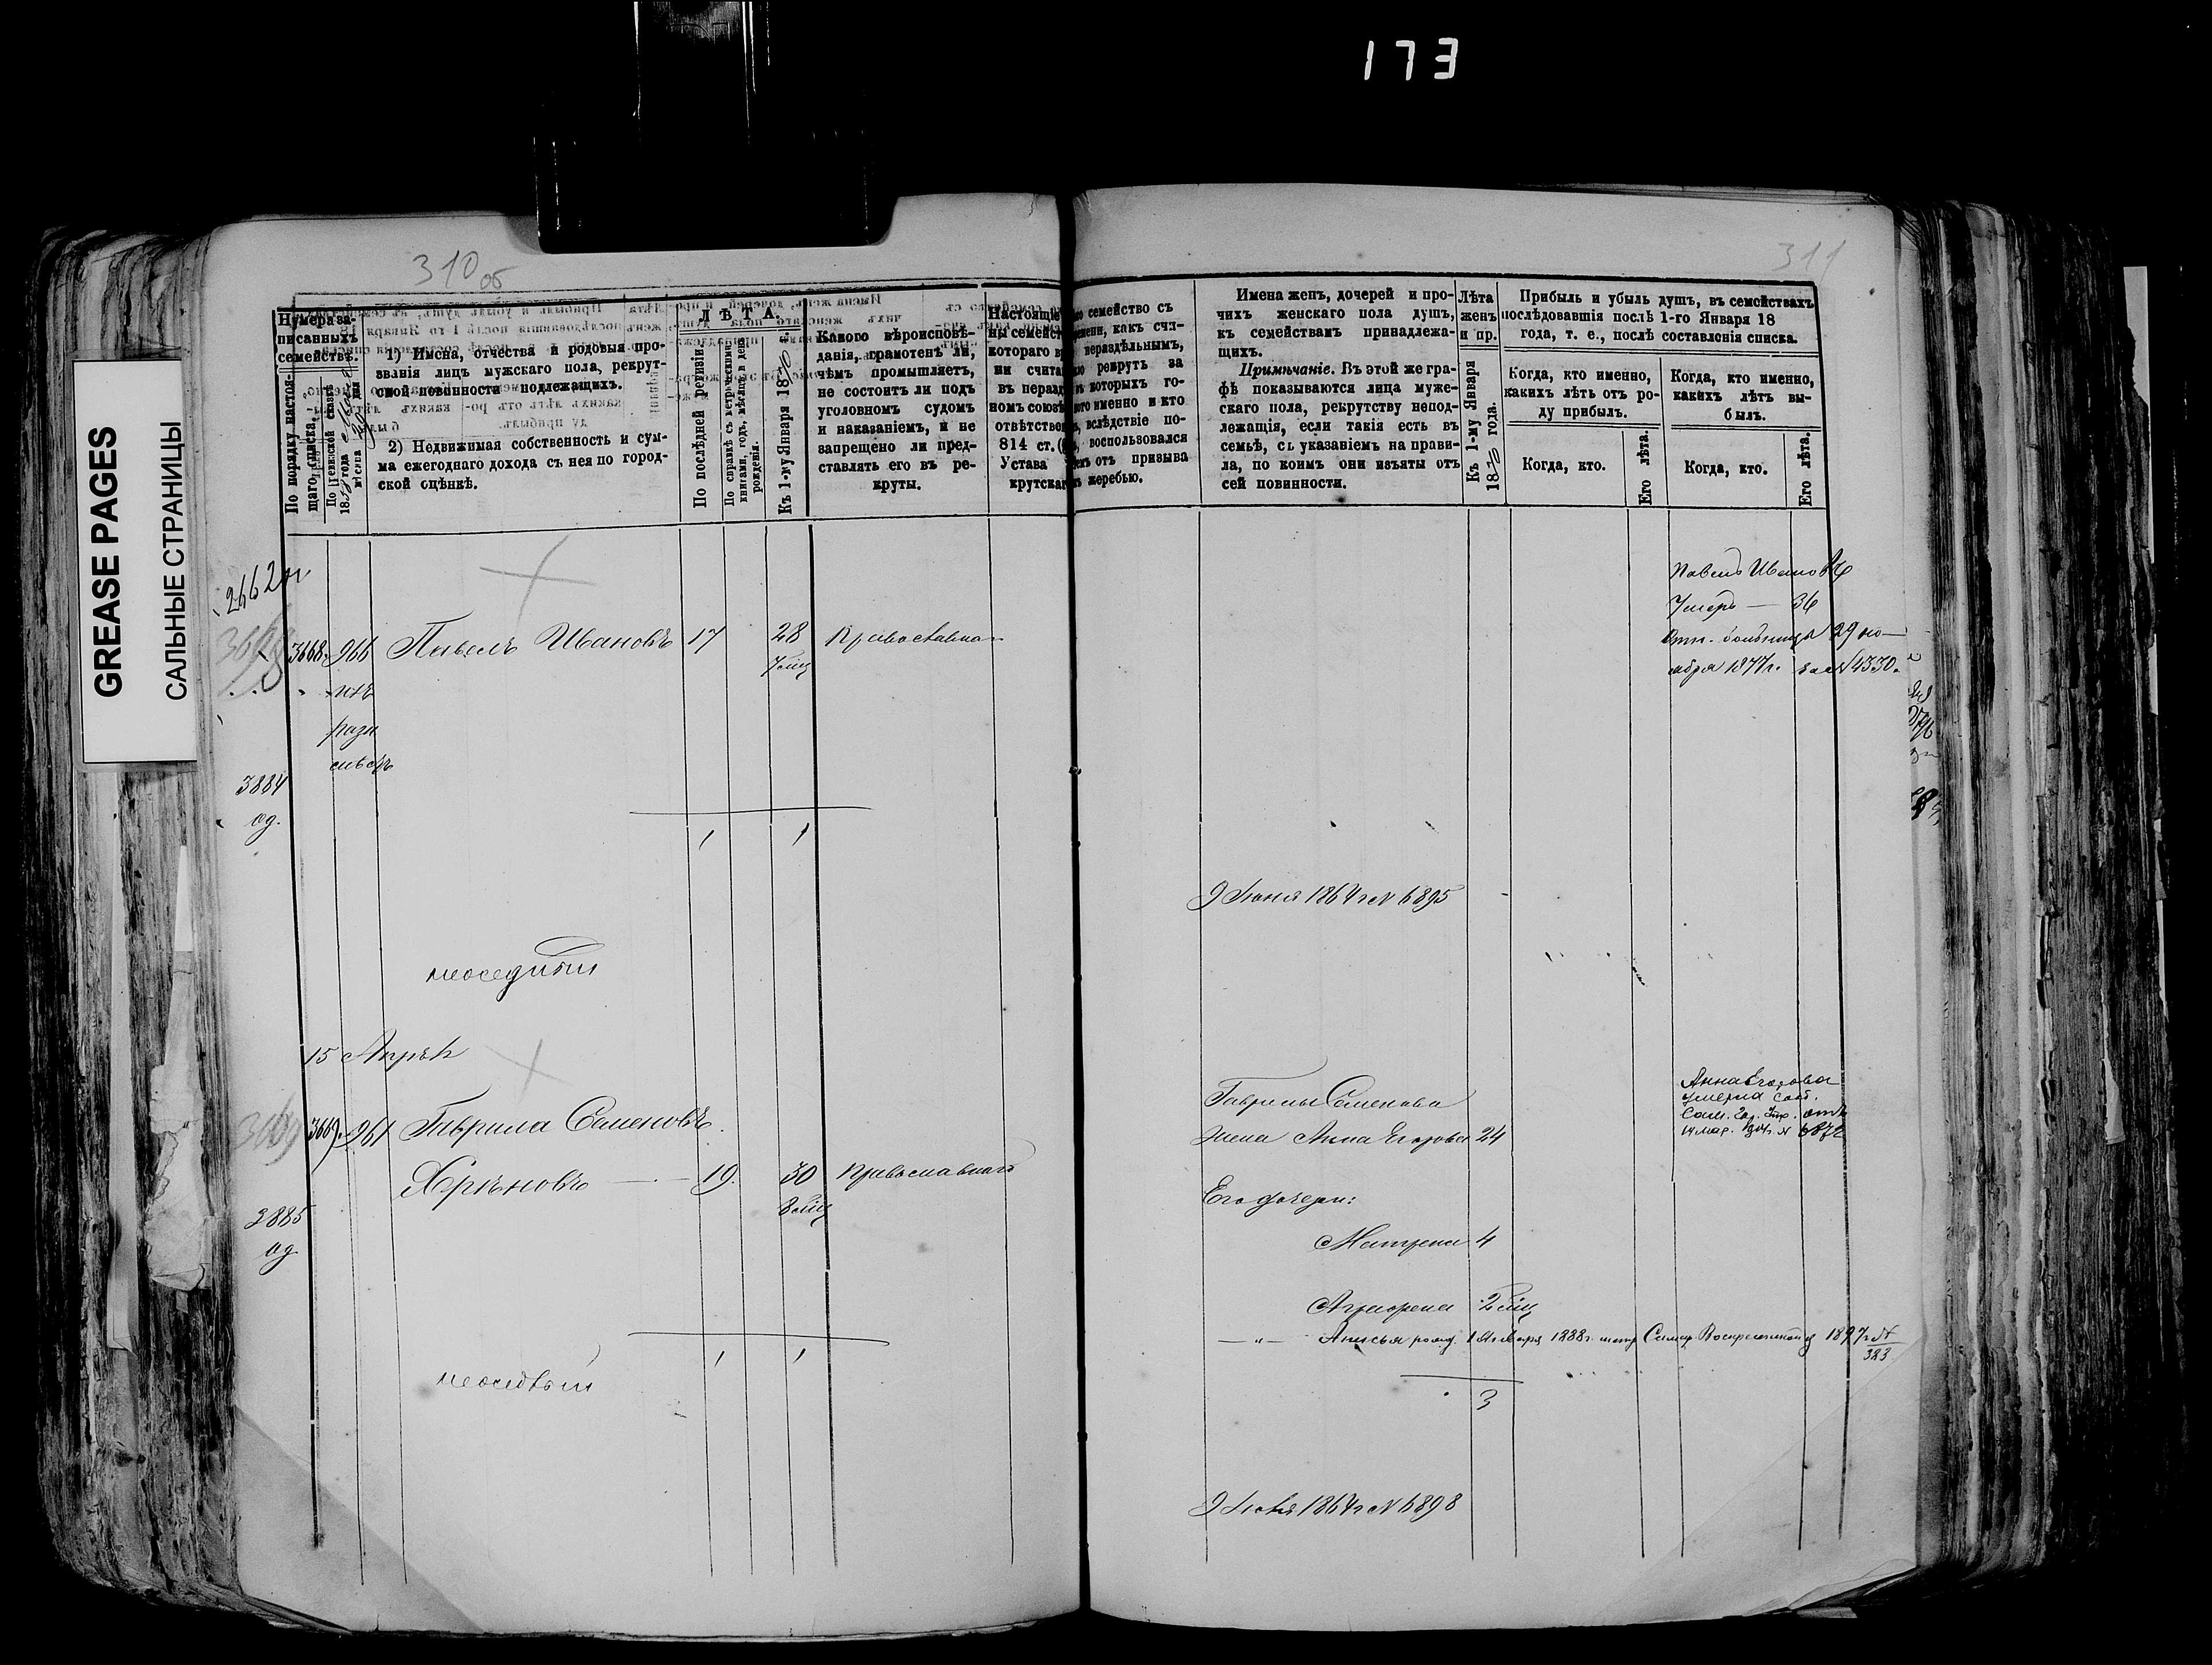 173
GREASE PAGES
САЛЬНЫЕ СТРАНИЦЫ
310 об
311
Нумера за-
писанныхъ
семействъ.
По порядку настоя-
щаго списка.
По ревизской сказкѣ
1858 года
мѣсяца дня
1) Имена, отчества и родовыя про-
званія лицъ мужскаго пола, рекрут-
ской повинности подлежащихъ.
2) Недвижимая собственность и сум-
ма ежегоднаго дохода съ нея по город-
ской оцѣнкѣ.
ЛѢТА.
По послѣдней ревизіи.
По справкѣ съ метрическими
книгами, годъ, мѣсяцъ и день
рожденія.
Къ 1-му Января 1870 г.
Какого вѣроисповѣ-
данія, грамотенъ ли,
чѣмъ промышляетъ,
не состоитъ ли подъ
уголовномъ судомъ
и наказаніемъ, и не
запрещено ли пред-
ставлять его въ ре-
круты.
Настоящіе
ны семейст
котораго в
ни счита
въ нераз
номъ союз
отвѣтствен
814 ст.
Устава
крутска
семейство съ
мени, какъ счи-
нераздѣльнымъ,
рекрутъ за
которыхъ го-
кого именно и кто
вслѣдствіе по-
воспользовался
отъ призыва
жеребью.
Имена женъ, дочерей и про-
чихъ женскаго пола душъ,
къ семействамъ принадлежа-
щихъ.
Примѣчаніе. Въ этой же гра-
фѣ показываются лица муже-
скаго пола, рекрутству непод-
лежащія, если такія есть въ
семьѣ, съ указаніемъ на прави-
ла, по коимъ они изъяты отъ
сей повинности.
Лѣта
женъ
и пр.
Къ 1-му Января
1870 года.
Прибыль и убыль душъ, въ семействахъ
послѣдовавшія послѣ 1-го Января 18
года, т. е., послѣ составленія списка.
Когда, кто именно,
какихъ лѣтъ отъ ро-
ду прибылъ.
Когда, кто.
Его лѣта.
Когда, кто именно,
какихъ лѣтъ вы-
былъ.
Когда, кто.
Его лѣта.
2662
3668. 966 Павелъ Ивановъ 17 28 Православнаго
7 мѣц
3884
од.
1 1
Павелъ Ивановъ
Умеръ — 36
отн. больницы 29 но-
ября 1877 г. за № 4330.
9 Іюня 1864 г № 6895
15 Апрѣл
3669. 961 Гаврила Семеновъ
Хрѣновъ — 19. 30 Православнаго
8 мѣц
3885
од
1 1
Гаврилы Семенова
жена Анна Егорова 24
Его дочери:
Матрена 4
Аграфена 2 мѣц
—"— Анисья рожд. 1888 г. метр Самар. Воскресенской ц 1897 г №
323
3
Анна Егорова
умерла
9 Іюня 1864 г № 6898